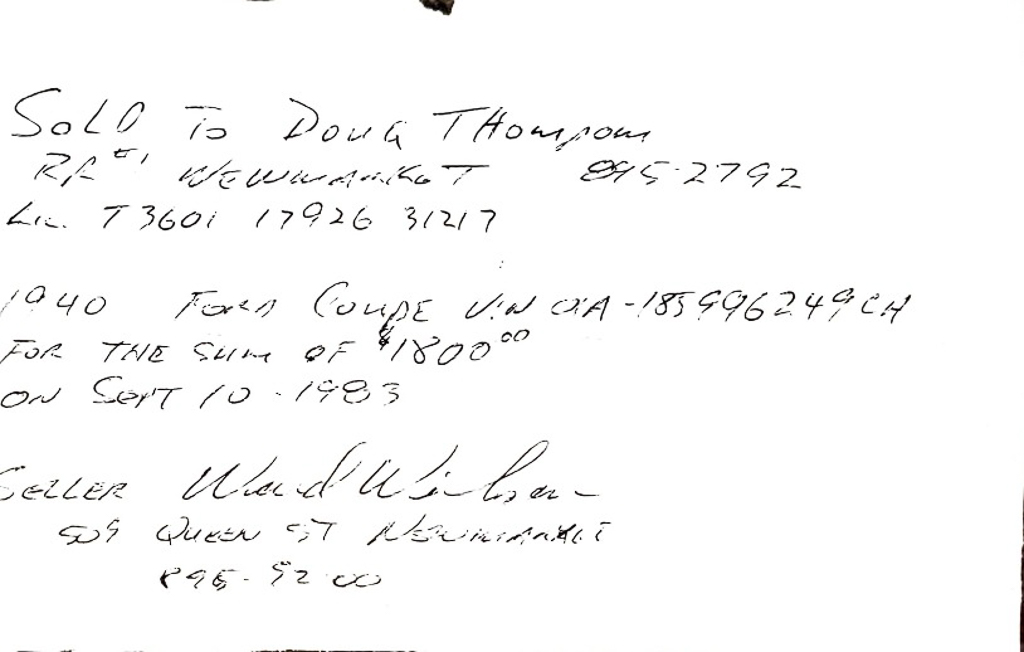 SOLD TO DOUG THOMPSON
RR #1 NEWMARKET 895-2792
Lic. T3601 17926 31217
1940 FORD COUPE VIN -185996249CA
FOR THE SUM OF $1800.00
ON SEPT 10 - 1983
SELLER Ward Wilson
509 QUEEN ST NEWMARKET
895-5200